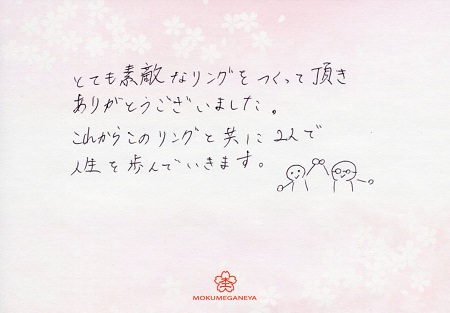 とても素敵なリングをつくって頂き
ありがとうございました。
これからこのリングと共に2人で
人生を歩んでいきます。
MOKUMEGANEYA